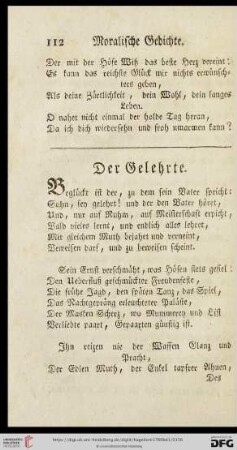 112 Moralische Gedichte.
Der mit der Höfe Witz das beste Herz vereint:
Es kann das reichste Glück mir nichts erwünsch-
ters geben,
Als deine Zärtlichkeit, dein Wohl, dein langes
Leben.
O nahet nicht einmal der holde Tag heran,
Da ich dich wiedersehn und froh umarmen kann?
Der Gelehrte.
Beglückt ist der, zu dem sein Vater spricht:
Sohn, sey gelehrt! und der den Vater höret,
Und, nur auf Ruhm, auf Meisterschaft erpicht,
Bald vieles lernt, und endlich alles lehret,
Mit gleichem Muth bejahet und verneint,
Beweisen darf, und zu beweisen scheint.
Sein Ernst verschmäht, was Höfen stets gefiel:
Den Ueberfluß geschmückter Freudenfeste,
Die frühe Jagd, den späten Tanz, das Spiel,
Das Nachtgepräng erleuchteter Paläste,
Der Masken Scherz, wo Mummerey und List
Verliebte paart, Gepaarten günstig ist.
Ihn reizen nie der Waffen Glanz und
Pracht,
Der Edlen Muth, der Enkel tapfrer Ahnen,
Des
UNIVERSITÄTS-
BIBLIOTHEK
HEIDELBERG
Gefördert durch die
DFG